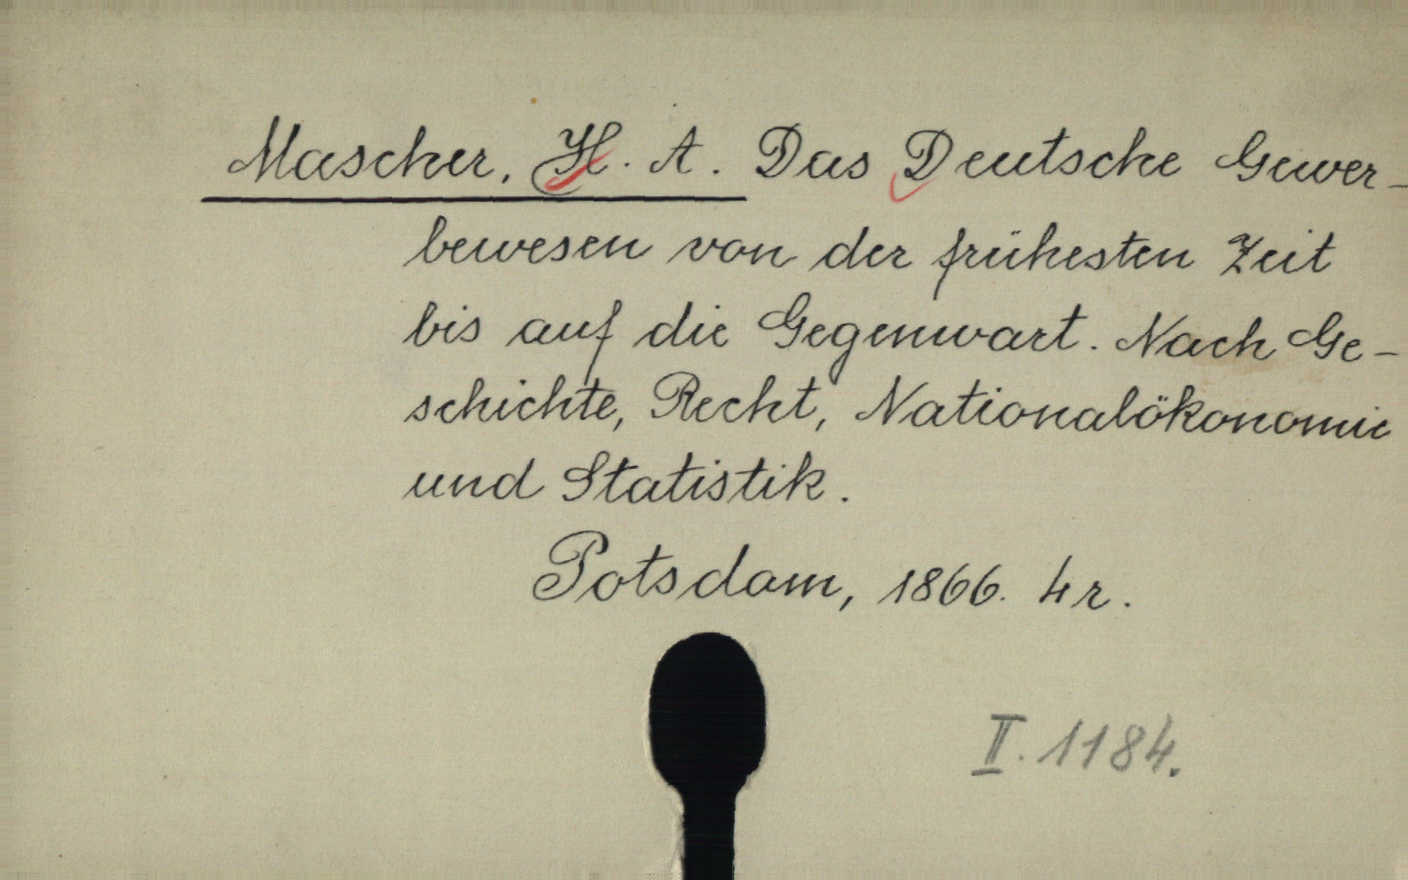 Mascher, H. A. Das Deutsche Gewer-
bewesen von der frühesten Zeit
bis auf die Gegenwart. Nach Ge-
schichte, Recht, Nationalökonomie
und Statistik.
Potsdam, 1866. 4r.
II. 1184.